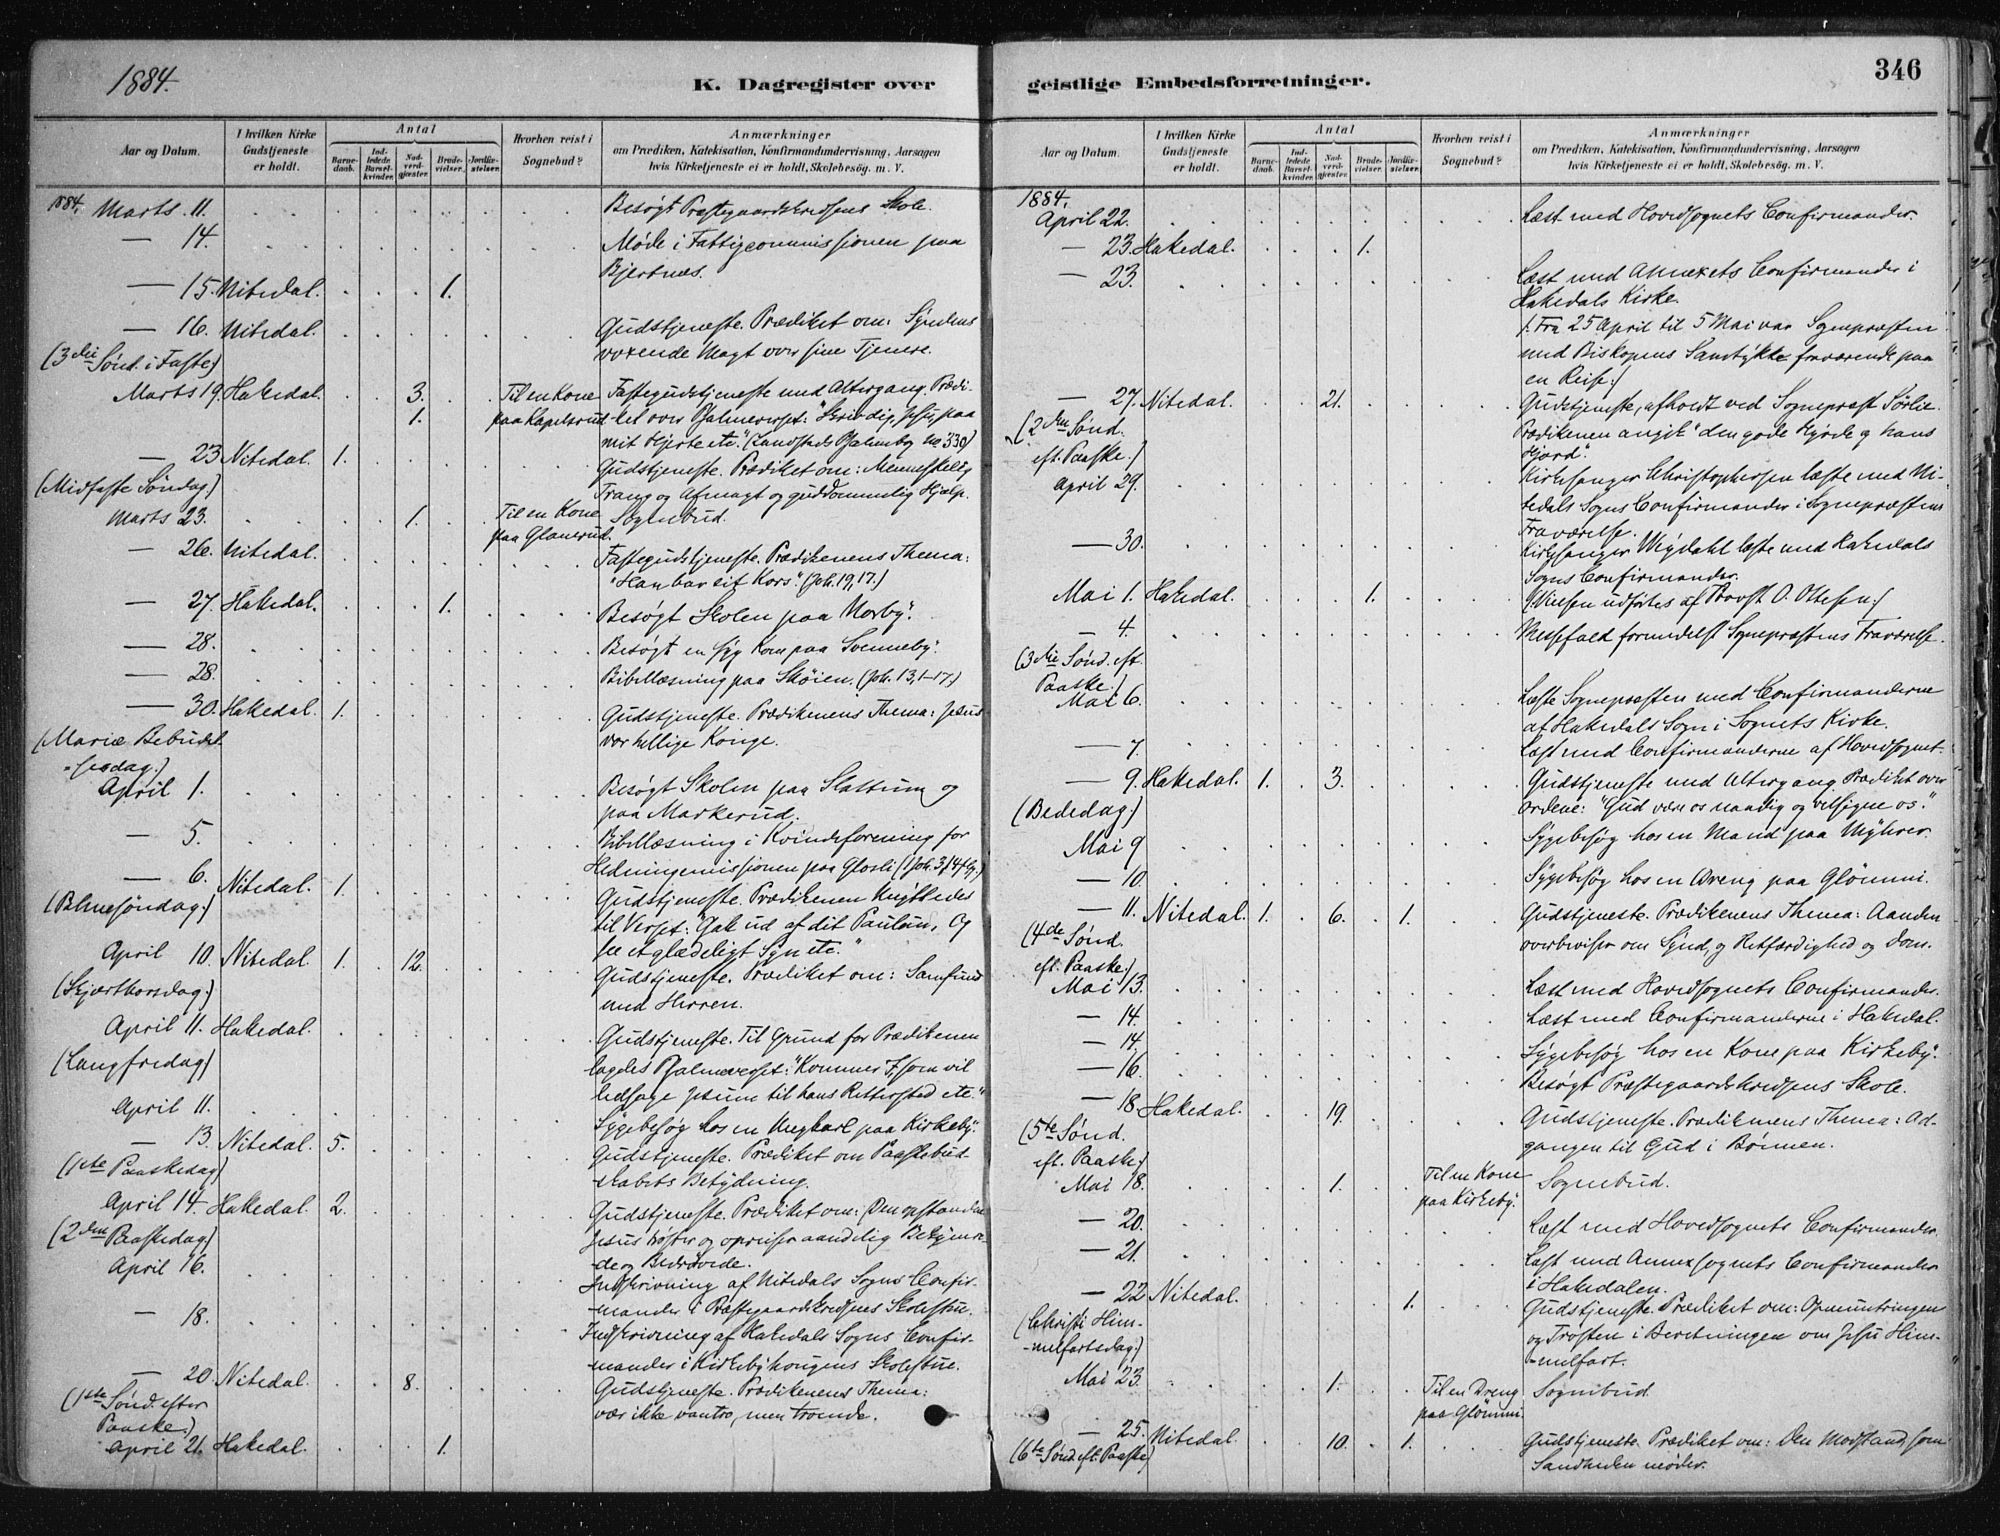 1884.
K. Dagregister over
Aar og Datum.
I hvilken Kirke Gudstjeneste er holdt.
Antal
Barne-daab.
Ind-ledede Barsel-kvinder.
Nad-verd-gjæster.
Brude-vielser.
Jordfæ-stelser.
Hvorhen reist i Sognebud?
Anmærkninger
om Prædiken, Katekisation, Konfirmandundervisning, Aarsagen
hvis Kirketjeneste ei er holdt, Skolebesög. m. V.
1884. Marts 11. Besøgt Præstegaardskredsens Skole.
— 14. Møde i Fattigcommissionen paa
Bjertnæs.
— 15. Nitedal. 1.
— 16. Nitedal. Gudstjeneste. Prædiket om: Syndens
(3die Sønd. i Faste) voxende Magt over sine Tjenere.
Marts 19. Hakedal. 3. Til en Kone Fastegudstjeneste med Altergang. Prædi-
1. paa Kapelsrud ket over Psalmeverset: "Skriv dig, Jesu, paa
mit Hjerte etc." (Landstads Psalmebog No 330)
— 23 Nitedal. 1. Gudstjeneste. Prædiket om: Menneskelig
(Midfaste Søndag.) Trang og Afmagt og guddommelig Hjælp.
Marts 23. 1. Til en Kone Sognebud.
paa Glanerud.
— 26. Nitedal. Fastegudstjeneste. Prædikenens Thema:
"Han bar sit Kors". (Joh. 19,17.)
— 27. Hakedal. 1. Besøgt Skolen paa Morby.
— 28. Besøgt en syg Kone paa Svenneby.
— 28. Bibellæsning paa Skøien. (Joh. 13,1-17.)
— 30. Hakedal. 1. Gudstjeneste. Prædikenens Thema: Jesus
(Mariæ Bebudel- vor hellige Konge.
-sesdag.)
April 1. Besøgt Skolen paa Slattum og
paa Markerud.
— 5. Bibellæsning i Kvindeforening for
Hedningemissionen paa Glosli (1 Joh. 3,14 flg.)
— 6. Nitedal. 1. Gudstjeneste. Prædikenen knyttedes
(Palmesøndag.) til Verset: "Gak ud af dit Paulun, Og
se et glædeligt Syn etc."
April 10. Nitedal. 1. 12. Gudstjeneste. Prædiket om: Samfund
(Skjærthorsdag.) med Herren.
April 11. Hakedal. Gudstjeneste. Til Grund for Prædikenen
(Langfredag) lagdes Psalmeverset: "Kommer I, som vil
ledsage Jesum til hans Rettersted etc."
April 11. Sygebesøg hos en Ungkarl paa Kirkeby.
— 13. Nitedal. 5. Gudstjeneste. Prædiket om Paaskebud-
(1ste Paaskedag) skabets Betydning.
April 14. Hakedal. 2. Gudstjeneste. Prædiket om: Den opstandne
(2den Paaskedag) Jesus trøster og opreiser aandelig Bekymre-
de og Bedrøvede.
April 16. Indskrivning af Nitedals Sogns Confir-
-mander i Præstegaardskredsens Skolestue.
— 18. Indskrivning af Hakedals Sogns Confir-
mander i Kirkebyhougens Skolestue.
— 20. Nitedal. 8. Gudstjeneste. Prædikenens Thema:
(1ste Sønd. efter vær ikke vantro, men troende.
Paaske.)
April 21. Hakedal. 1.
geistlige Embedsforretninger.
346
Aar og Datum.
I hvilken Kirke Gudstjeneste er holdt.
Antal
Barne-daab.
Ind-ledede Barsel-kvinder.
Nad-verd-gjæster.
Brude-vielser.
Jordfæ-stelser.
Hvorhen reist i Sognebud?
Anmærkninger
om Prædiken, Katekisation, Konfirmandundervisning, Aarsagen
hvis Kirketjeneste ei er holdt, Skolebesög. m. V.
1884.
April 22. Læst med Hovedsognets Confirmander.
— 23. Hakedal. 1.
— 23. Læst med Annexets Confirmander i
Hakedals Kirke.
/: Fra 25 April til 5 Mai var Sognepræsten
med Biskopens Samtykke fraværende paa
en Reise :/
— 27. Nitedal. 21. Gudstjeneste, afholdt ved Sognepræst Sørlie.
(2den Sønd. Prædikenen angik "den gode Hyrde og hans
eft. Paaske.) Hjord".
April 29. Kirkesanger Christophersen læste med Ni-
tedals Sogns Confirmander i Sognepræstens
Fraværelse.
— 30. Kirkesanger Wigdahl læste med Hakedals
Sogns Confirmander.
Mai 1. Hakedal. 1. (/: Vielsen udførtes af Provst O. Ottesen :/)
— 4. Messefald formedelst Sognepræstens Fraværelse.
(3die Sønd. eft.
Paaske.)
Mai 6. Læste Sognepræsten med Confirmanderne
af Hakedals Sogn i Sognets Kirke.
— 7. Læst med Confirmanderne af Hovedsognet.
— 9. Hakedal. 1. 3. Gudstjeneste med Altergang. Prædiket over
(Bededag.) Ordene: "Gud være os naadig og velsigne os."
Mai 9 Sygebesøg hos en Mand paa Myhrer.
— 10. Sygebesøg hos en Dreng paa Glømmi.
— 11. Nitedal. 1. 6. 1. Gudstjeneste. Prædikenens Thema: Aanden
(4de Sønd. overbeviser om Synd, og Retfærdighed og Dom.
eft. Paaske.)
Mai 13. Læst med Hovedsognets Confirmander.
— 14. Læst med Confirmanderne i Hakedal.
— 14. Sygebesøg hos en Kone paa Kirkeby.
— 16. Besøgt Præstegaardskredsens Skole.
— 18 Hakedal. 19. Gudstjeneste. Prædikenens Thema: Ad-
(5te Sønd. gangen til Gud i Bønnen.
eft. Paaske)
Mai 18. 1. Til en Kone Sognebud.
paa Kirkeby.
— 20. Læst med Hovedsognets Confirmander.
— 21. Læst med Annexsognets Confirmander
i Hakedalen.
— 22 Nitedal. 1. Gudstjeneste. Prædiket om: Opmuntringen
(Christi Him- og Trøsten i Beretningen om Jesu Him-
-melfartsdag.) -melfart.
Mai 23. 1. Til en Dreng Sognebud
paa Glømmi.
— 25. Nitedal. 10. 1. Gudstjeneste. Prædiket om: Den Modstand, som
(6te Sønd. eft. Paaske) Sandheden møder.